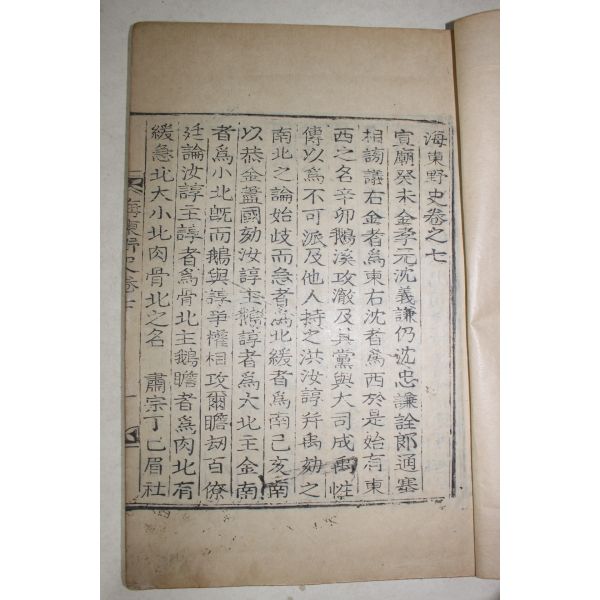 海東野史卷之七
宣廟癸未金孝元沈義謙仍沈忠謙詮郎通塞
相謗議右金者爲東右沈者爲西於是始有東
西之名辛卯鵝溪攻澈及其黨與大司成禹性
傳以爲不可派及他人持之洪汝諄幷禹劾之
南北之論始歧而急者爲北緩者爲南己亥南
以恭金藎國劾汝諄主鵝諄者爲大北主金南
者爲小北旣而鵝與諄爭權相攻爾瞻劫百僚
廷論汝諄主諄者爲骨北主鵝瞻者爲肉北有
緩急北大小北肉骨北之名 肅宗丁巳眉社
海東野史卷七 一